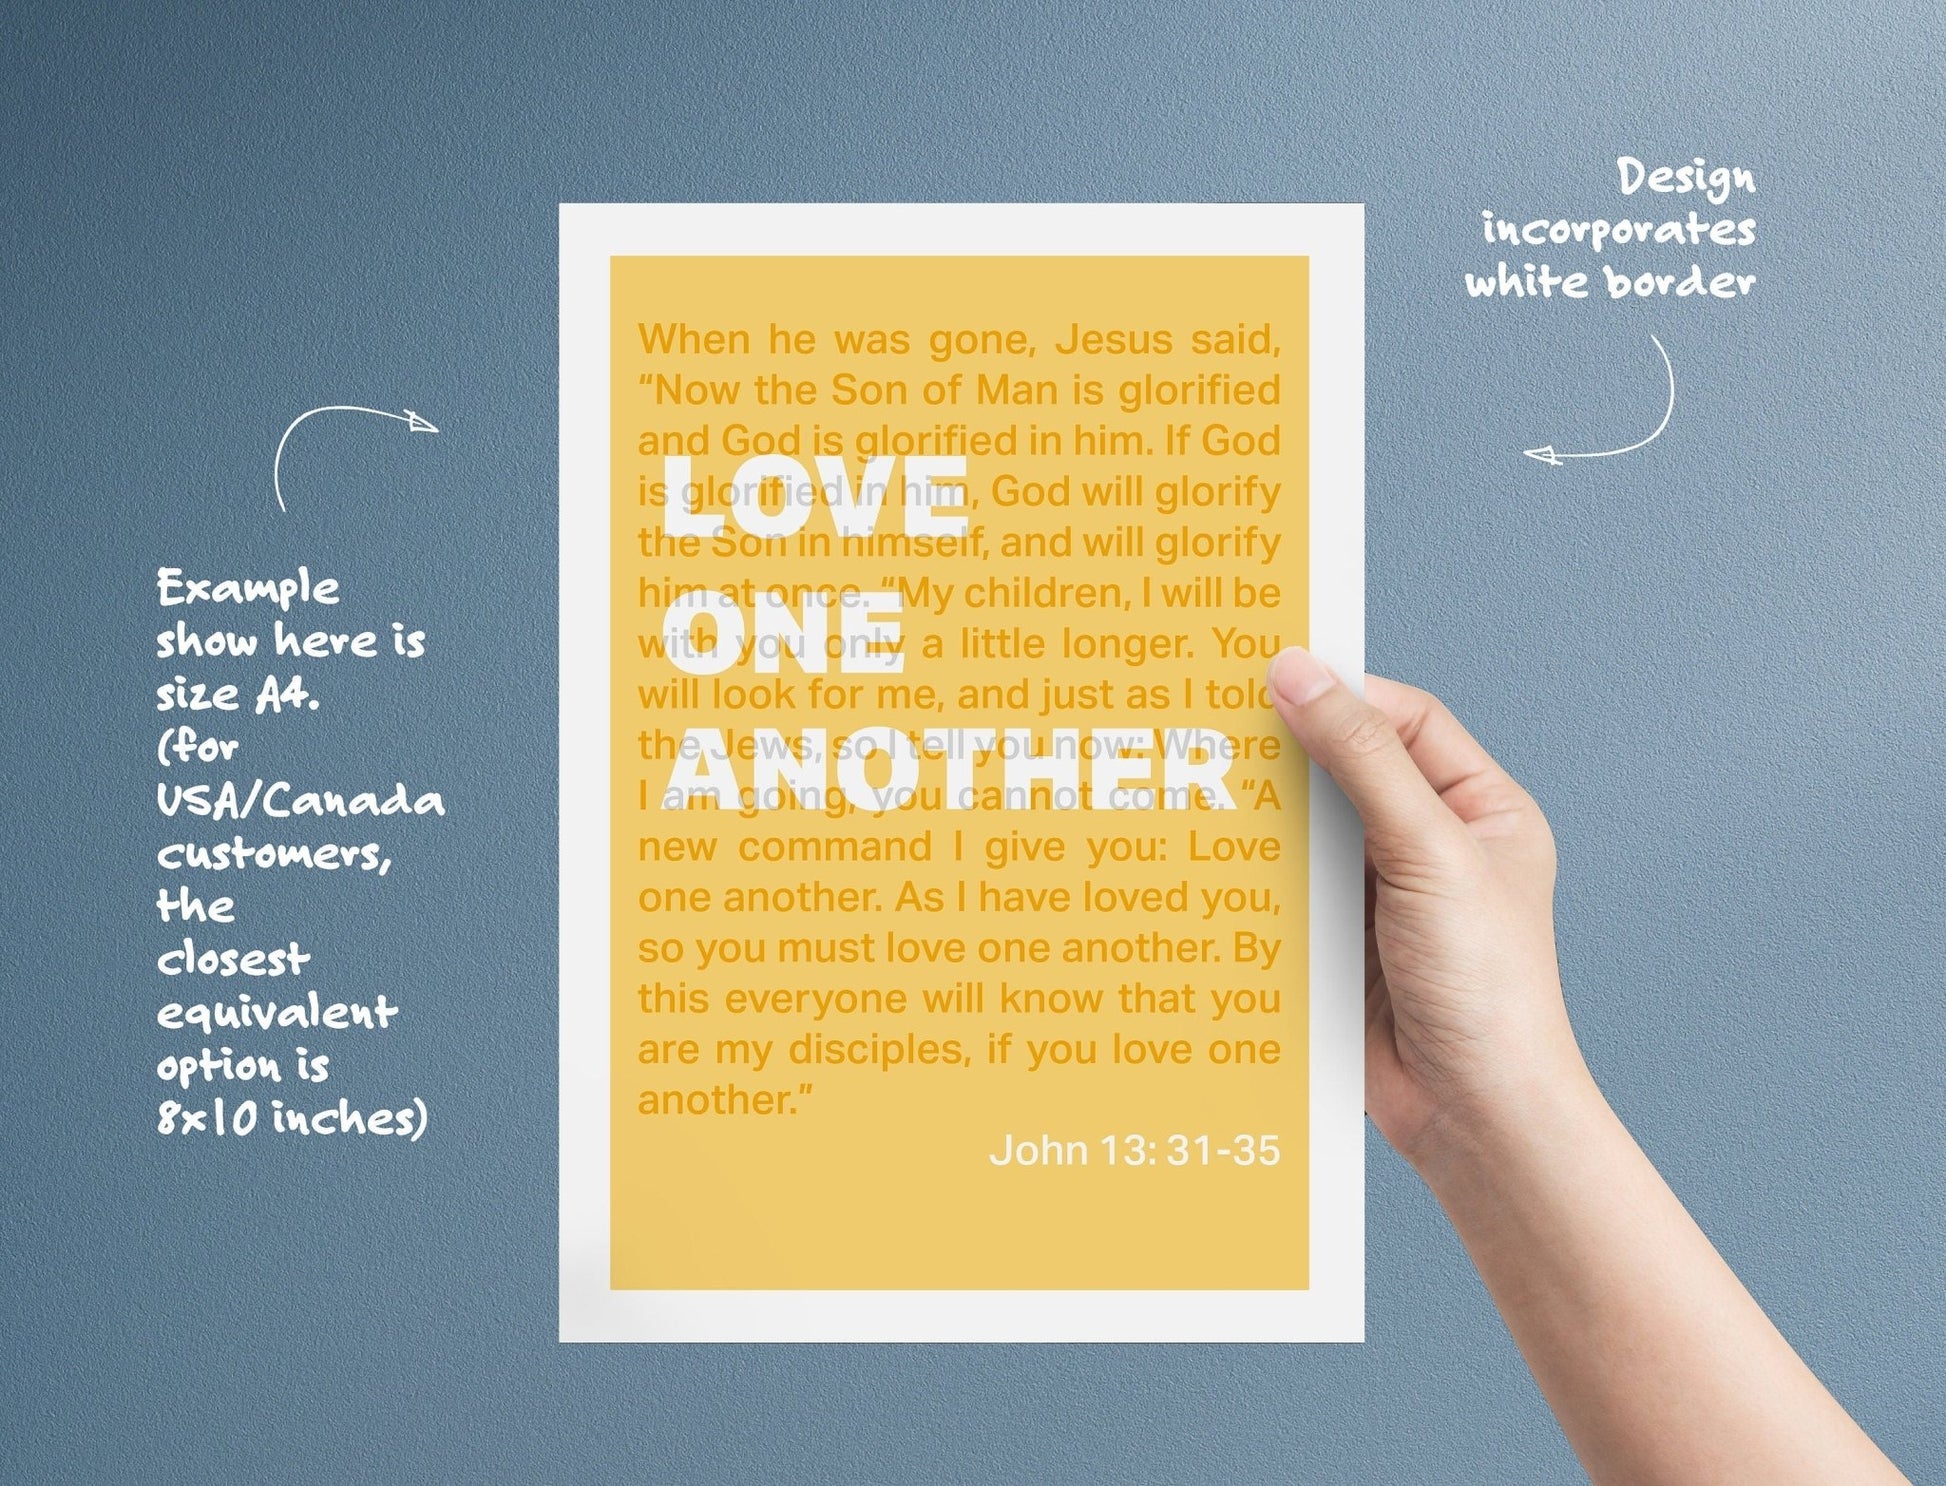 Design
incorporates
white border
Example
show here is
size A4.
(for
USA/Canada
customers,
the
closest
equivalent
option is
8x10 inches)
When he was gone, Jesus said,
“Now the Son of Man is glorified
and God is glorified in him. If God
is glorified in him, God will glorify
the Son in himself, and will glorify
him at once. “My children, I will be
with you only a little longer. You
will look for me, and just as I told
the Jews, so I tell you now: Where
I am going, you cannot come. “A
new command I give you: Love
one another. As I have loved you,
so you must love one another. By
this everyone will know that you
are my disciples, if you love one
another.”
LOVE
ONE
ANOTHER
John 13: 31-35